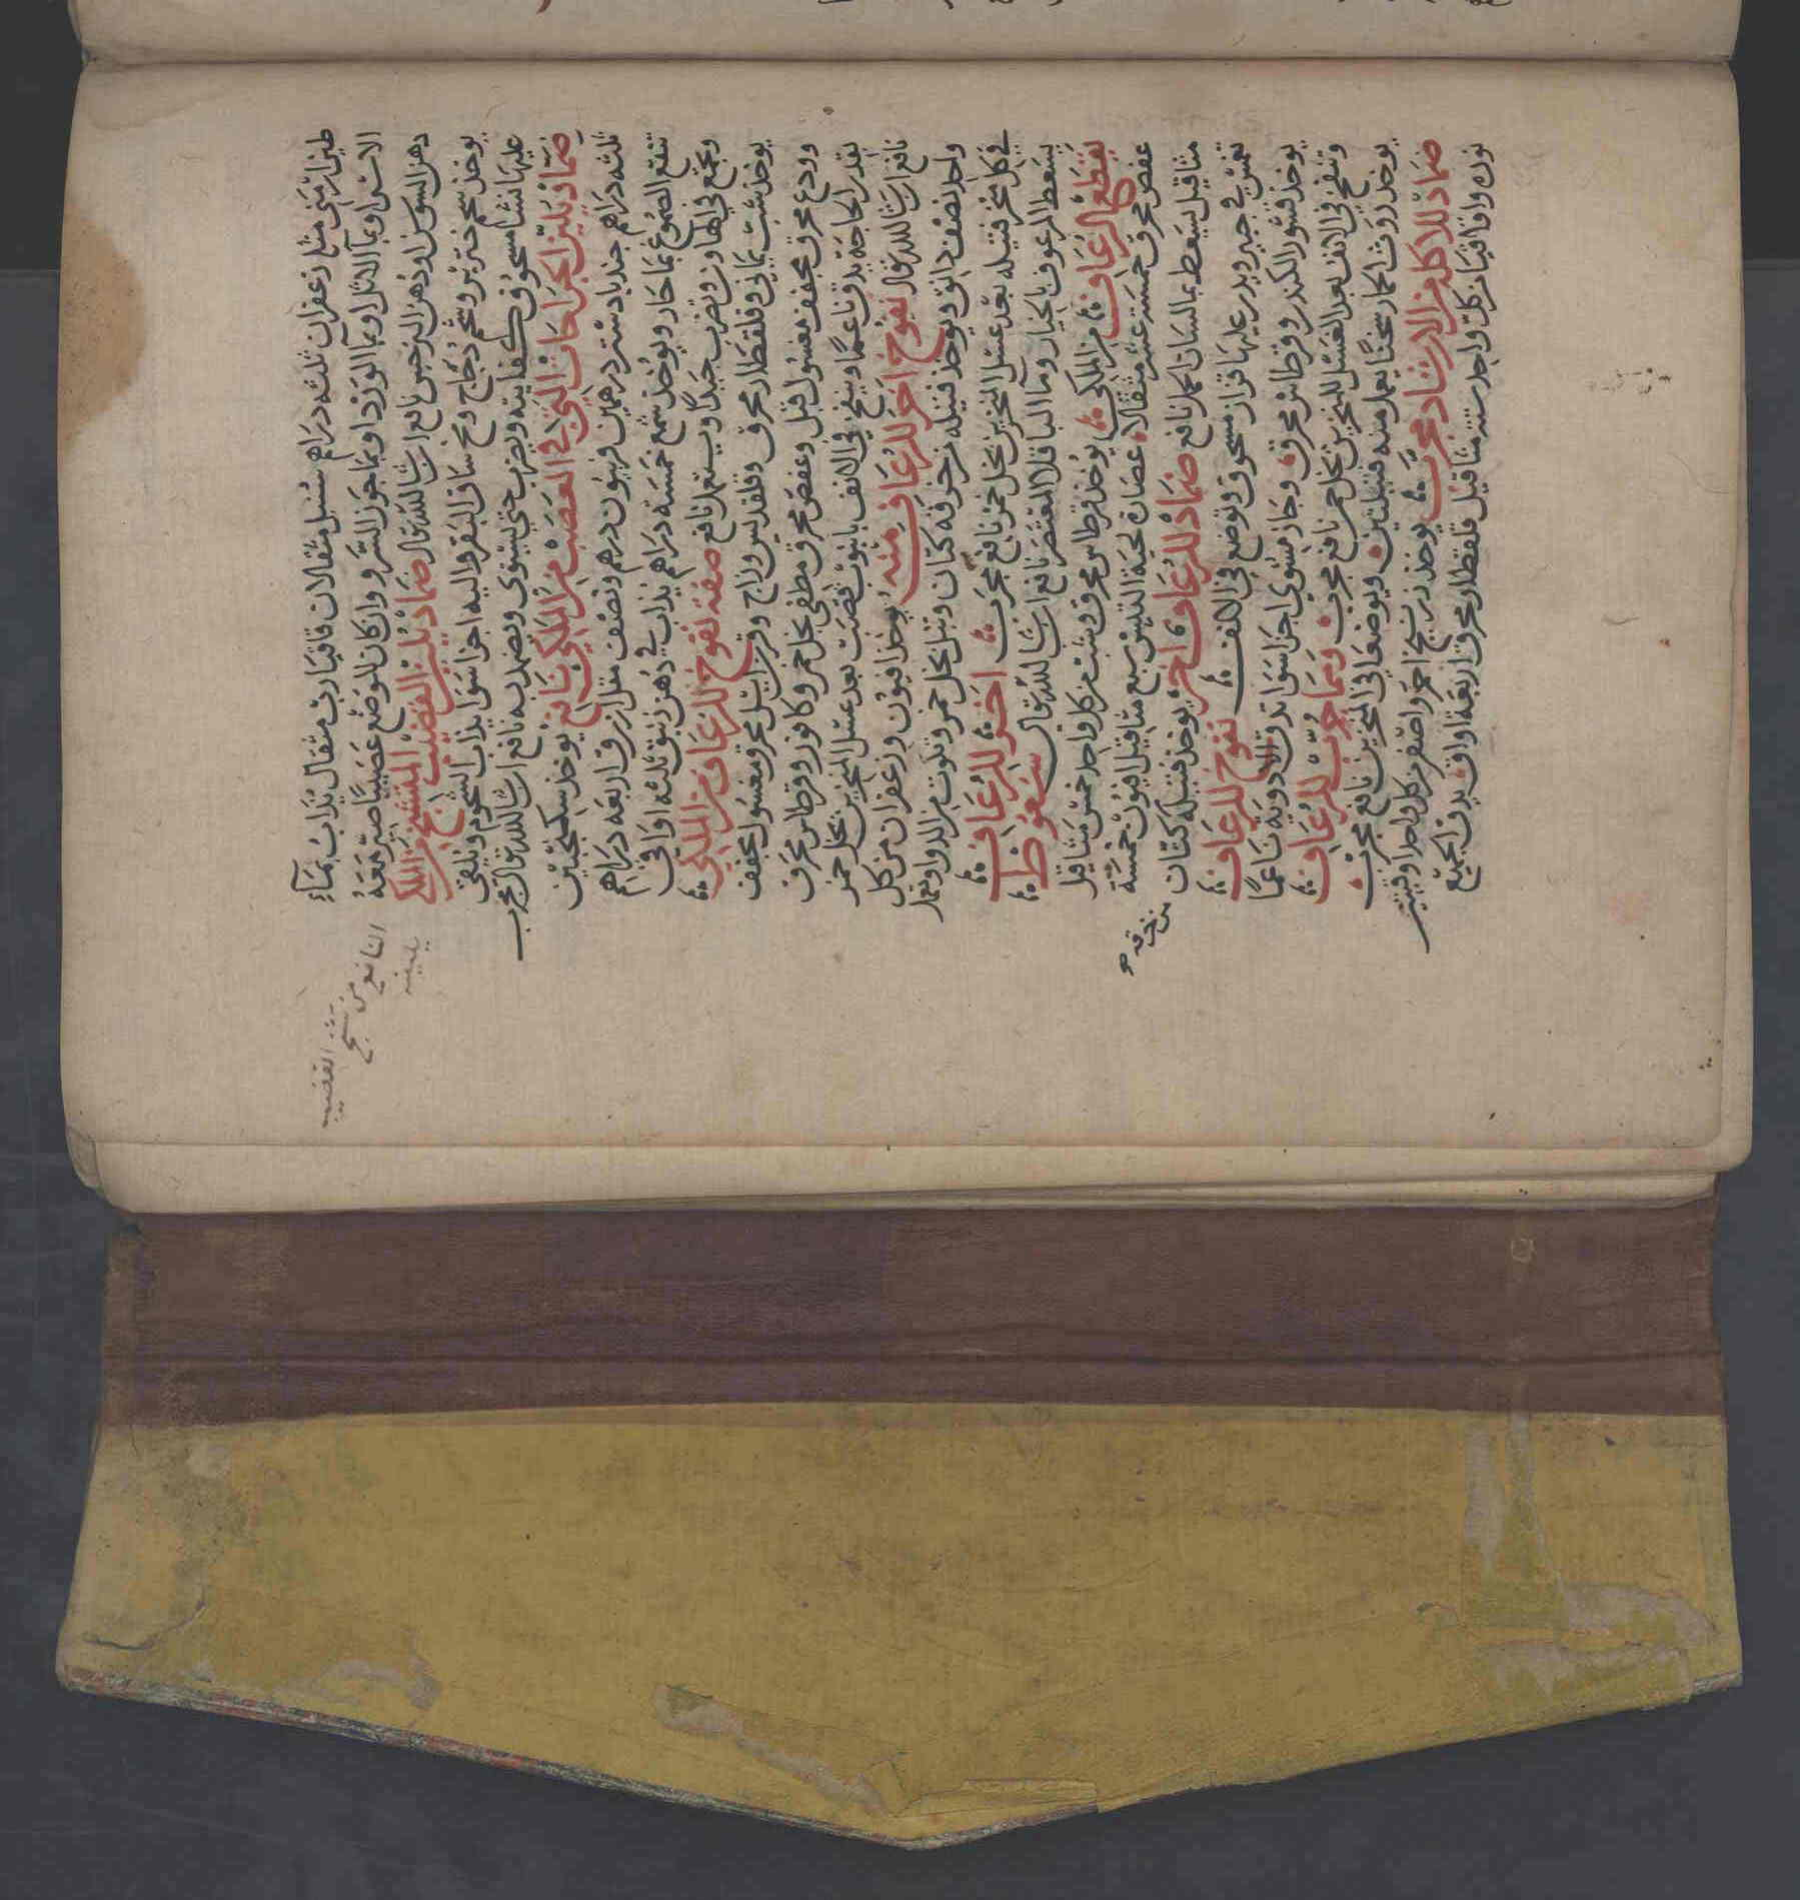 طين ارمني مثل زعفران ثلثه دراهم سنبل مثقالان قاقيا رب مثقال يذاب بماء
الاس او بماء الاثل او بماء الورد او بماء جوز السرو وان كان الموضع عصبيا صير معه
دهن السوسن او دهن النرجس نافع ان شا الله تعالى ضماد يلين القضيب المتشنج من الملكي
يوخذ شحم خنزير وشحم دجاج ومخ ساق البقر والية اجزا سوا يذاب الشحوم ويلقى
عليها نشا مسحوق كفايته ويضرب حتى يستوى ويضمد به نافع ان شا الله تعالى مجرب
ضماد يلين الجراحات التي في العصب من الملكي نافع يوخذ سكبينج
ثلثه دراهم جندبادستر درهمين فربيون درهم ونصف مقل ازرق اربعه دراهم
تنقع الصموغ بما حار ويوخذ شمع خمسة دراهم يذاب في دهن زنبق ثلثه اواقي
وتجمع في الهاون وتضرب جيدا ويستعمل نافع صفة نفوخ للرعاف من الملكي
يوخذ شب يماني وقلقطار محرق وقلقديس وزاج وقرن ايل محرق مغسول مجفف
وودع محرق مجفف مغسول قبل وعفص محرق مطفى بخل خمر وكافور وقرطاس محرق
بقدر الحاجة يدق ناعما وينفخ في الانف بانبوب قصب بعد غسل المنخرين بخل خمر
نافع ان شا الله تعالى نفوخ اخر للرعاف منه يوخذ افيون وزعفران من كل
واحد نصف دانق ويوخذ فتيله من خرقه كتان وتبل بخل خمر وتلوث من الدوا وتعمل
في كل منخر فتيله بعد غسل المنخرين بخل خمر نافع مجرب اخر للرعاف
يسعط المرعوف بالخيار وما الباقلا المعتصر نافع ان شا الله تعالى سعوط
يقطع الرعاف من الملكي يوخذ قرطاس محرق وشب من كل واحد خمس مثاقيل
عفص محرق خمسة عشر مثقالا عصارة لحية التيس سبع مثاقيل افيون خمسة
مثاقيل يسعط بما لسان الحمل نافع ضماد للرعاف اخر يوخذ فتيله كتان
من خرقه صح
تغمس في حبر ويدر عليها مسحوق وتوضع في الانف نفوخ للرعاف
يوخذ قشور الكندر وقرطاس محرق مشوي اجزا سوا تدق الادوية ناعما
وتنفخ في الانف بعد الغسل للمنخرين بخل خمر نافع مجرب ومما جرب للرعاف
يوخذ روث الحمار سخنا يعمل منه فتيلتين ويوضعا في المنخرين نافع مجرب
ضماد للاكلة من الارشاد مجرب يوخذ زرنيخ احمر واصفر من كل واحد اوقيتين
نوره واقاقيا من كل واحد ستة مثاقيل قلقطار محرق اربعة اواق يدق الجميع
النافع من تشنج
القضيب